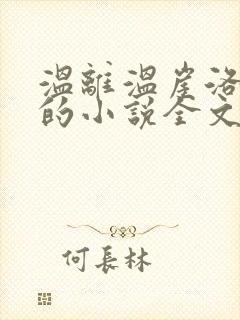 溫離溫崖洛
的小說全文
何長林